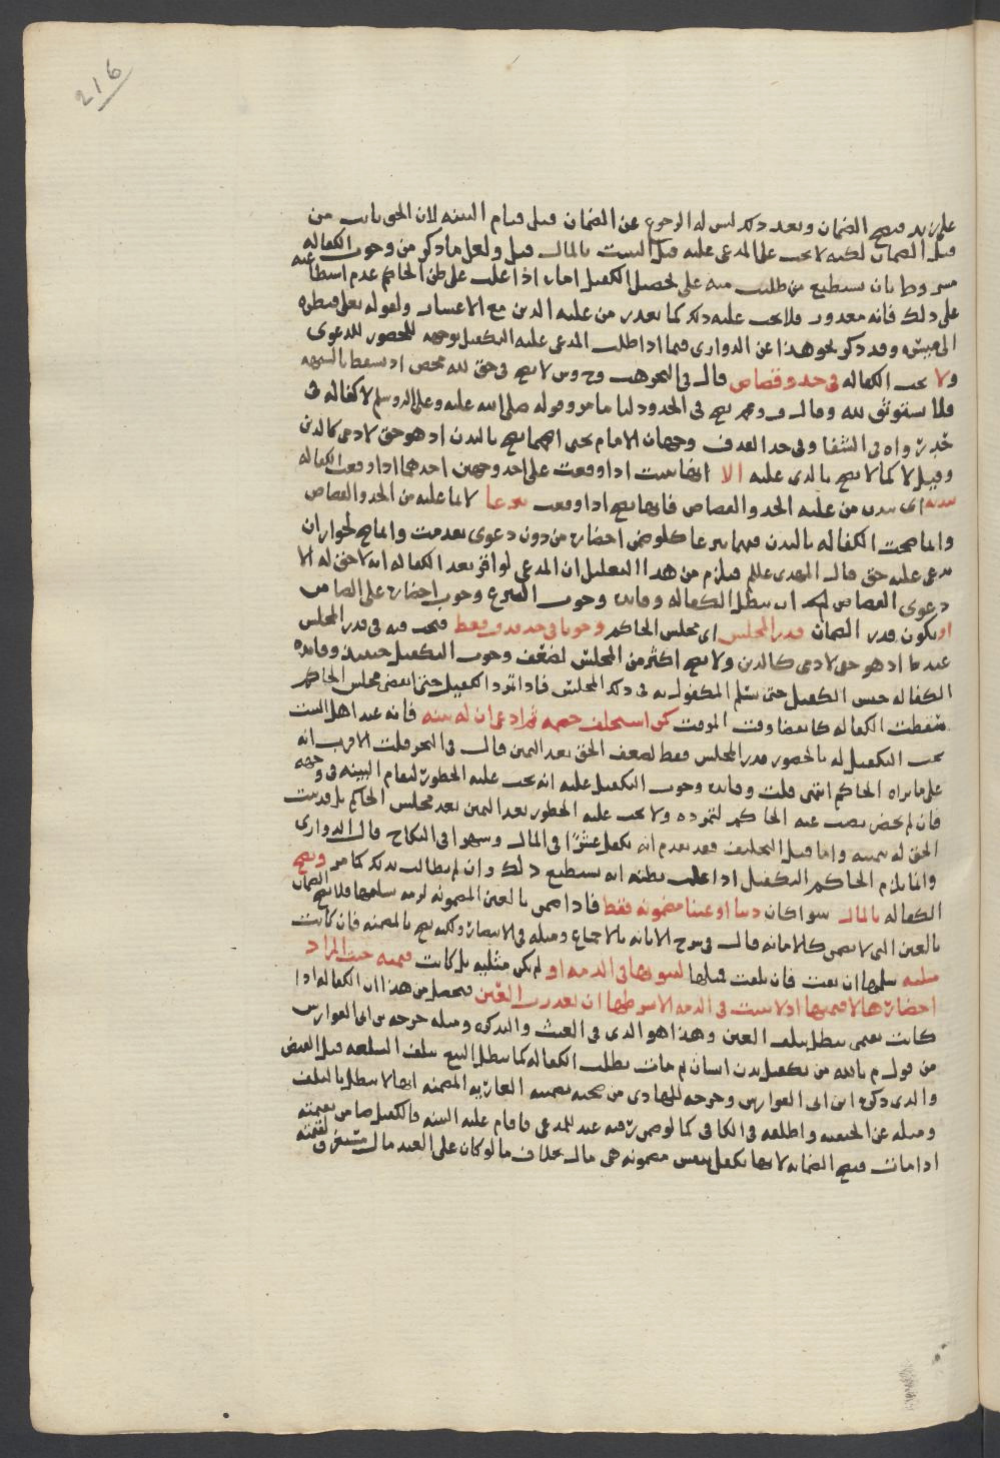 216
على زيد فيصح الضمان وبعد ذلك ليس له الرجوع عن الضمان قبل قيام البينه لان الحق ثابت من
قبل الضمان لكنه لا يجب على المدعى عليه قبل البينه بالمال قيل ولعل ما ذكر من وجوب الكفاله
مشروط بان يستطيع من طلبت منه على تحصيل الكفيل اما اذا غلب على ظن الحاكم عدم استطاعته
على ذلك فانه معذور فلا يجب عليه ذلك كما يعذر من عليه الدين مع الاعسار ولقوله تعلى فنظره
الى ميسره وقد ذكر نحو هذا عن الدوارى فيما اذا طلب المدعى عليه التكفيل بوجهه للحضور للدعوى
ولا يجب الكفاله في حد وقصاص قال في البحر هب وح وش لا يصح في حق لله محض اذ يسقط بالشبهه
فلا يستوثق لله وقال ف و محمد يصح في الحدود لنا ما مر وقوله صلى الله عليه وعلى اله وسلم لا كفاله في
حد رواه في الشفا وفي حد القذف وجهان الامام يحيى اصحهما يصح بالبدن اذ هو حق لادمي كالدين
وقيل لا كما لا يصح بالذي عليه الا انها تثبت اذا وقعت على احد وجهين احدهما اذا وقعت الكفاله
ببدنه اى ببدن من عليه الحد والقصاص فانها يصح اذا وقعت تبرعا لا بما عليه من الحد والقصاص
وانما صحت الكفاله بالبدن فيهما تبرعا كلو ضمن احضاره من دون دعوى تقدمت وانما صح لجواز ان
يدعى عليه حق قال المهدى عللم فيلزم من هذا التعليل ان المدعى لو اقر بعد الكفاله انه لا حق له الا
دعوى القصاص ان تبطل الكفاله وفائده وجوب التبرع وجوب احضاره على الضامن
او يكون قدر الضمان قدر المجلس اى مجلس الحاكم وجوبا في حد قذف فقط فيجب فيه في قدر المجلس
عندنا اذ هو حق لادمي كالدين ولا يصح اكثر من المجلس لضعف وجوب التكفيل حينئذ وفائده
الكفاله حبس الكفيل حتى يسلم المكفول به في ذلك المجلس فاذا تمرد الكفيل حتى انقضى مجلس الحاكم
سقطت الكفاله كانقضا وقت الموقت كمن استحلف خصمه ثم ادعى ان له بينه فانه عند اهل البيت
يجب التكفيل له بالحضور قدر المجلس فقط لضعف الحق بعد اليمين قال في البحر قلت الاقرب انه
على ما يراه الحاكم انتهى قلت وفائده وجوب التكفيل عليه انه يجب عليه الحضور لتقام البينه في وجهه
فان لم يحضر نصب عنه الحاكم لتمرده ولا يجب عليه الحضور بعد اليمين بعد مجلس الحاكم بل قد ثبت
الحق له بيمينه واما قبل التحليف فقد تقدم انه يكفل عشرًا في المال وشهرا في النكاح قال الدوارى
وانما يلزم الحاكم التكفيل اذا غلب بظنه انه يستطيع ذلك وان لم يطالب بدلك كما مر ويصح
الكفاله بالمال سوا كان دينا او عينا مضمونه فقط فاذا ضمن بالعين المضمونه لزمه تسليمها فلا يصح الضمان
بالعين التي لا تضمن كالامانه قال في شرح الابانه بالاجماع ومثله في الانتصار ولكنه يصح بالمضمنه فان كانت
مثليه سلمها ان بقيت فان تلفت فمثلها لثبوتها في الذمه او لم تكن مثليه بل كانت قيميه حيث المراد
احضارها لا قيمتها اذ لا تثبت في الذمه الا بشرطها ان تعذرت العين فتحصل من هذا ان الكفاله اذا
كانت بقيمى تبطل بتلف العين وهذا هو الذي في الغيث والتذكره ومثله خرجه بن ابى الفوارس
من قول م بالله من تكفل ببدن انسان ثم مات بطلت الكفاله كما تبطل البيع بتلف السلعه قبل القبض
والذى ذكره ابن ابى الفوارس وخرجه للهادى من صحه تضمين العاريه المضمنه انها لا تبطل بالتلف
ومثله عن الحنفيه واطلقه في الكافى كما لو ضمن رقبه عبد للمدعى فاقام عليه البينه فالكفيل ضامن بقيمته
اذا مات فيصح الضمانه لانها تكفل بنفس مضمونه هى مال بخلاف ما لو كان على العبد مال مستغرق لقيمته